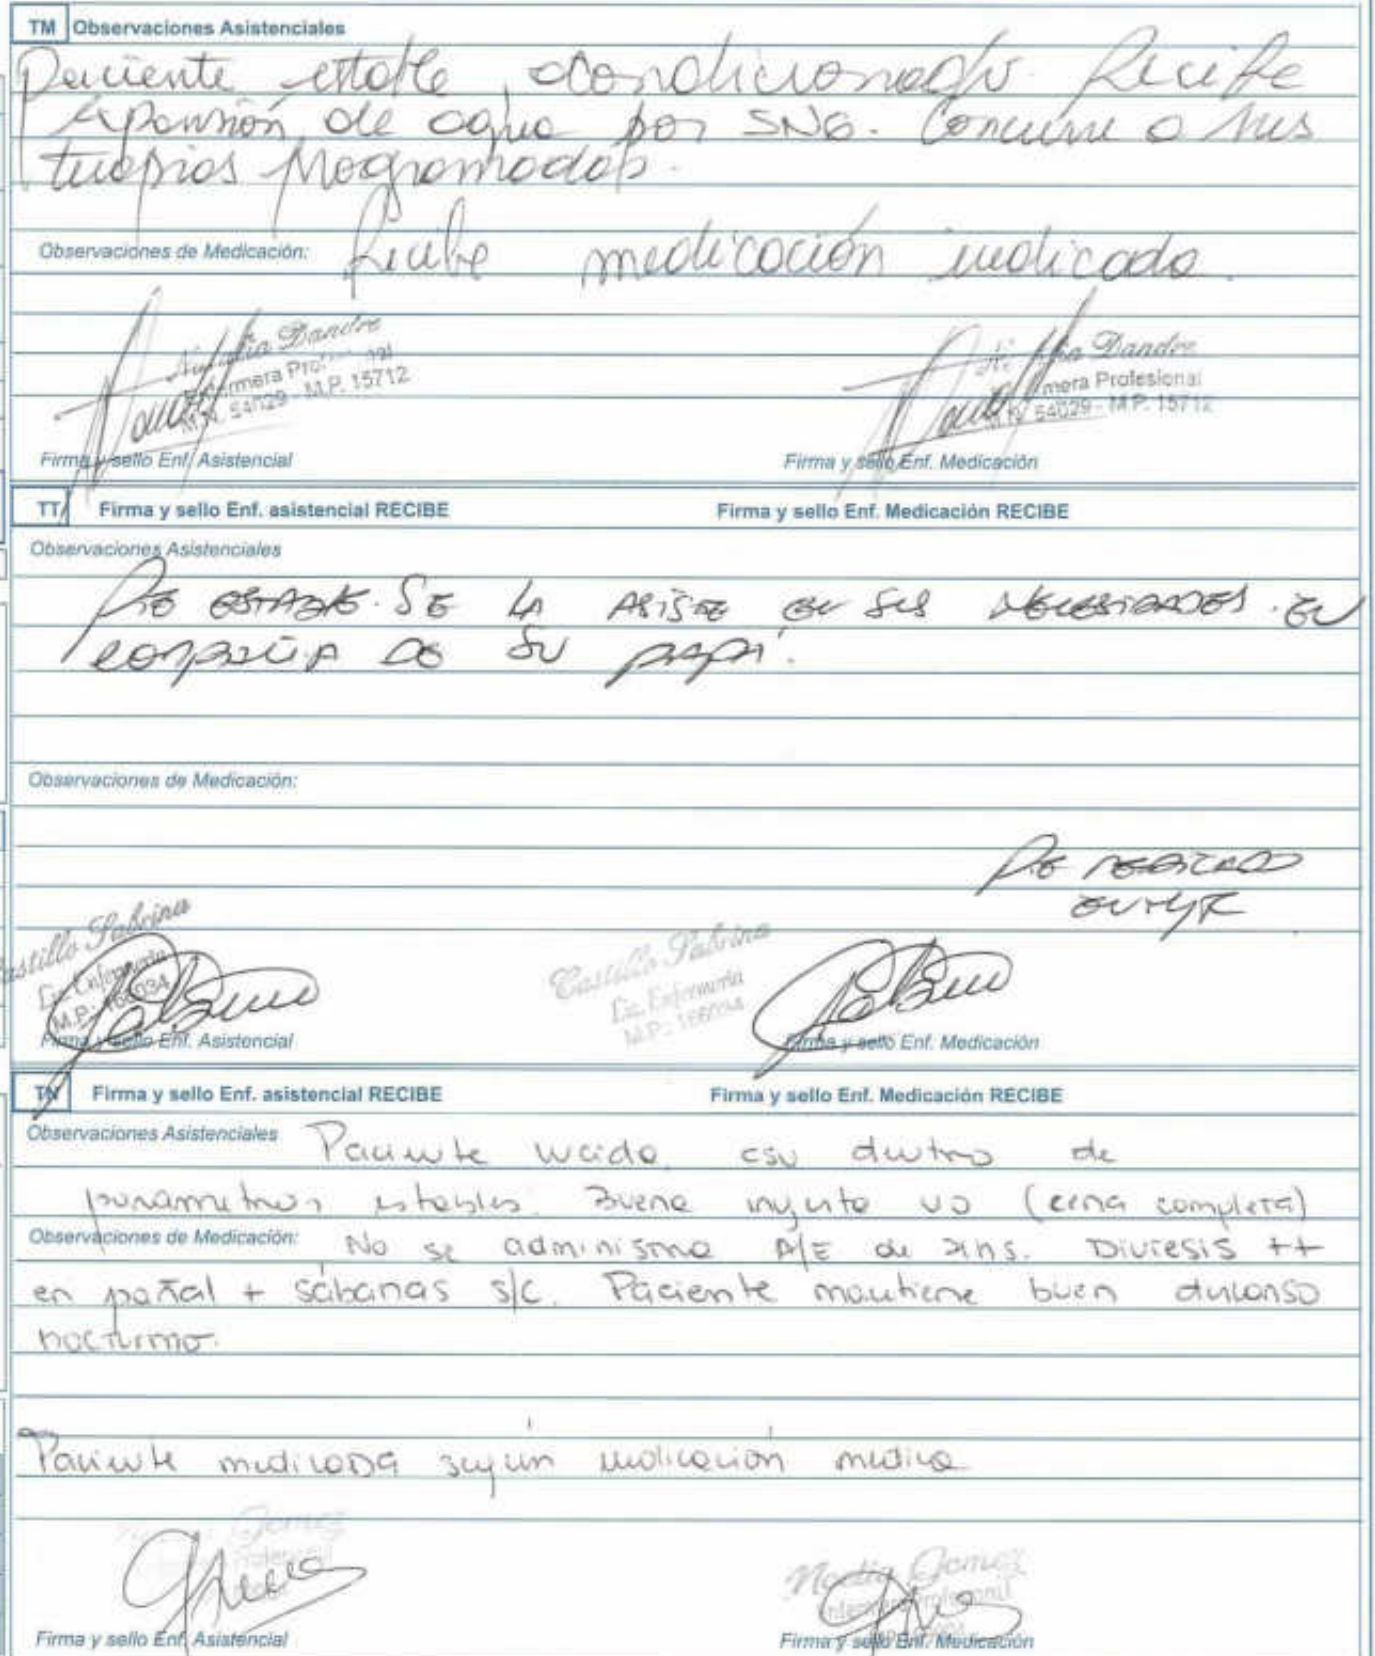 TM Observaciones Asistenciales
Paciente estable, acondicionado. Recibe
expansión de agua por SNG. Concurre a sus
terapias programadas.
Observaciones de Medicación: Recibe medicación indicada.
Natalia Dandre Dandre
Enfermera Profesional mera Profesional
M.N. 54029 - M.P. 15712 M.N. 54029 - M.P. 15712
Firma y sello Enf. Asistencial Firma y sello Enf. Medicación
TT Firma y sello Enf. asistencial RECIBE Firma y sello Enf. Medicación RECIBE
Observaciones Asistenciales
PTE ESTABLE. SE LA ASISTE EN SUS NECESIDADES. EN
COMPAÑIA DE SU PAPÁ.
Observaciones de Medicación:
PTE MEDICADO
Castillo Sabrina Castillo Sabrina
Lic. Enfermería Lic. Enfermería
M.P.: 166034 M.P.: 166034
Firma y sello Enf. Asistencial Firma y sello Enf. Medicación
TN Firma y sello Enf. asistencial RECIBE Firma y sello Enf. Medicación RECIBE
Observaciones Asistenciales Paciente lucida, csv dentro de
parametros estables. Buena ingesta VO (cena completa)
Observaciones de Medicación: No se administra A/E de Diuresis ++
en pañal + sábanas s/c. Paciente mantiene buen descanso
nocturno.
Paciente medicada según indicación medica
Gomez Nadia Gomez
Profesional Enfermera Profesional
Firma y sello Enf. Asistencial Firma y sello Enf. Medicación